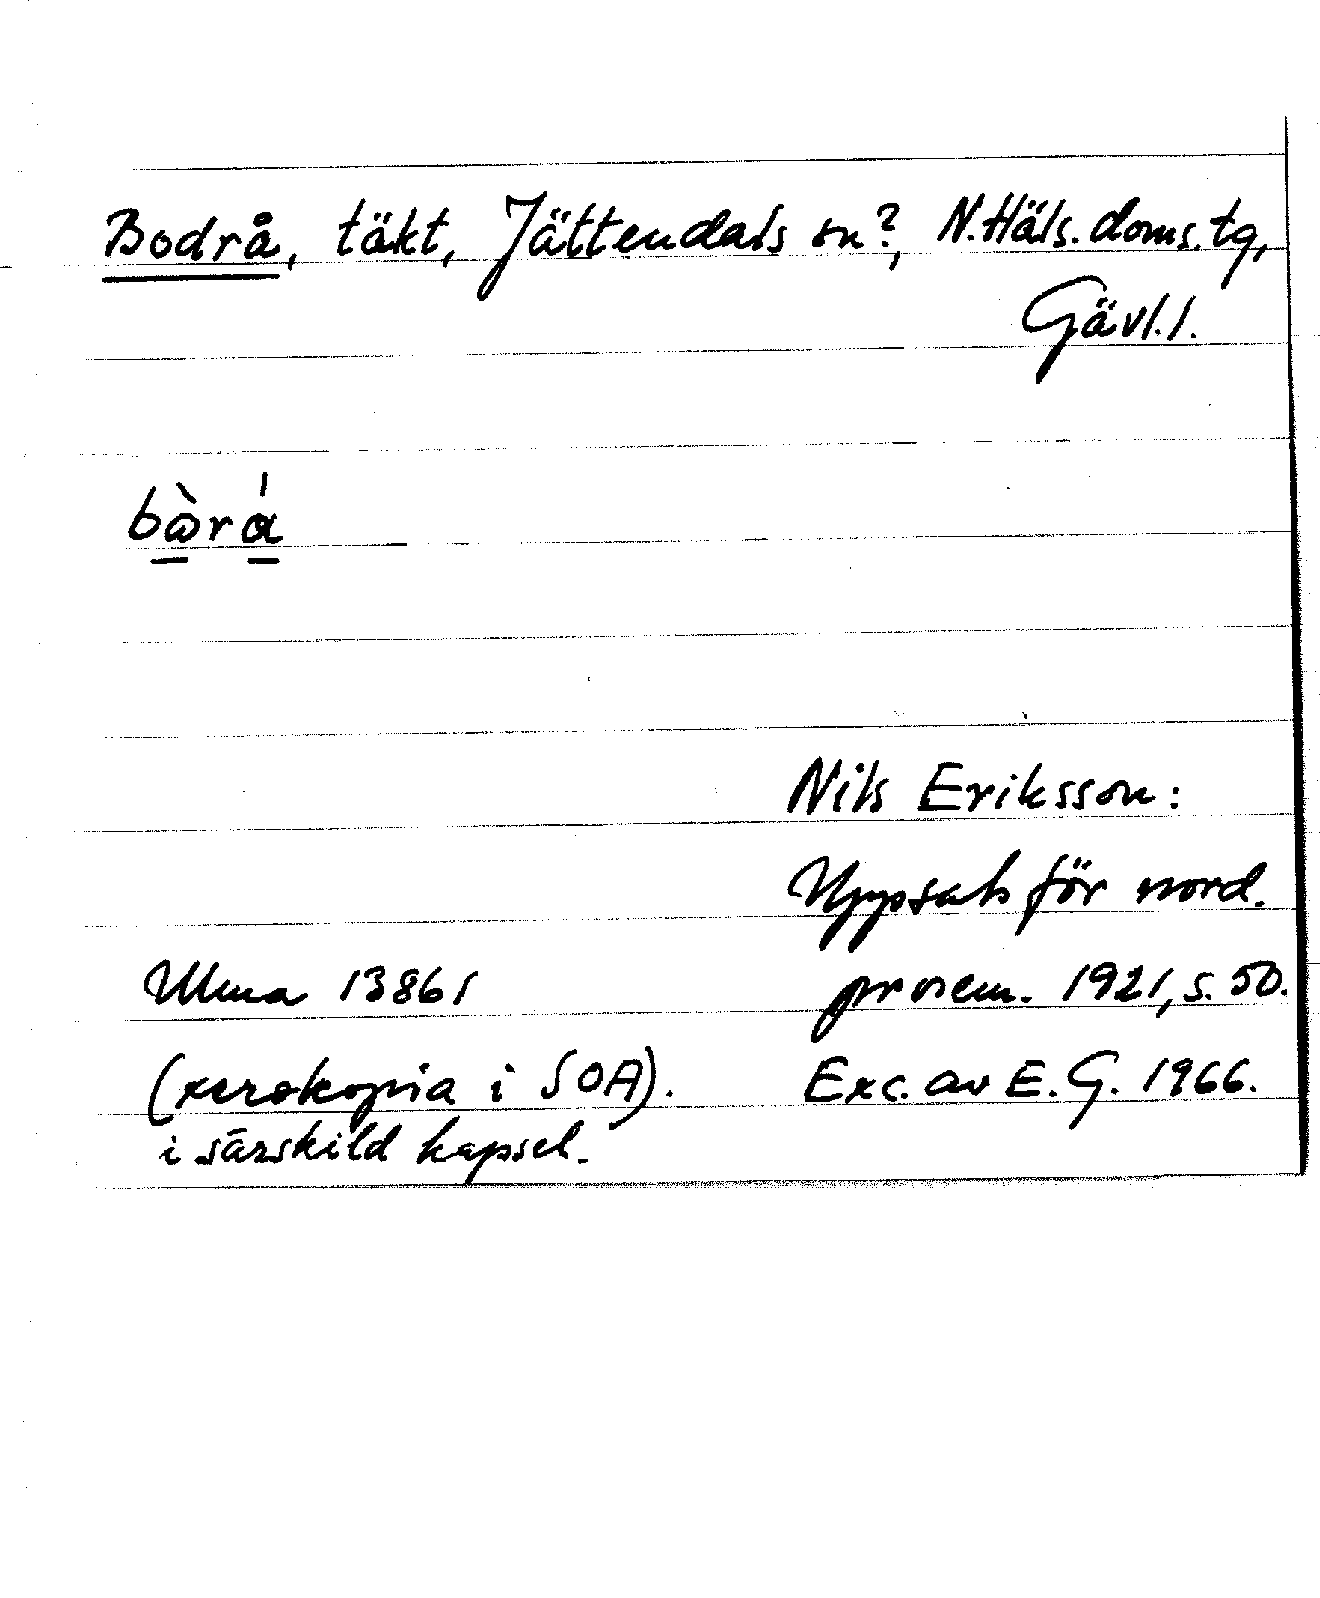 Bodrå, täkt, Jättendals sn?, N. Häls. doms. tg,
Gävl. l.
bὼrά
Nils Eriksson:
Uppsats för nord.
Ulma 13861 prosem. 1921, s. 50.
(xerokopia i SOA). Exc. av E. G. 1966.
i särskild kapsel.